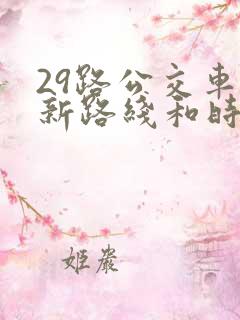 29路公交車
新路綫和時
姬嚴